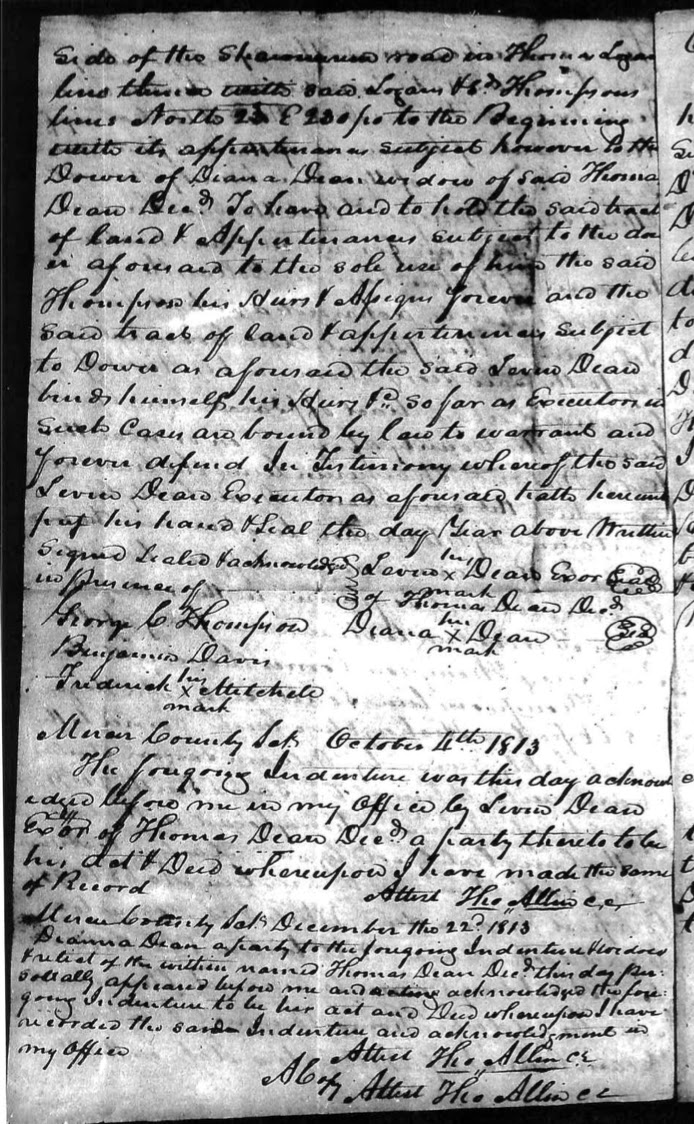 side of the Shawanee road in Thomas Logan
line thence with said Logans & sd Thompsons
lines North 25 E 230 po to the Beginning
with its appertinances subject however to the
Dower of Diana Dean widow of said Thomas
Dean Decd To have and to hold the said tract
of land & Appertinances subject to the dow
er aforesaid to the sole use of him the said
Thompson his Heirs & Assigns forever and the
said tract of land & appertinances subject
to Dower as aforesaid the said Levin Dean
binds himself his Heirs &c so far as Executors in
such Cases are bound by law to warrant and
forever defend In Testimony whereof the said
Levin Dean Executor as aforesaid hath hereunto
put his hand & Seal the day Year above Written
Signed Sealed & acknowledged Levin his x mark Dean Exor Seal
in presence of of Thomas Dean Decd
George C Thompson Diana his x mark Dean Seal
Benjamin Davis
Frederick his x mark Mitchell
Mercer County Sct October 4th 1813
The foregoing Indenture was this day acknowl
edged before me in my Office by Levin Dean
Exor of Thomas Dean Decd a party thereto to be
his act & Deed whereupon I have made the same
of Record
Attest Tho Allin C,C
Mercer County Sct December the 22d 1813
Dianna Dean a party to the foregoing Indenture & widow
& relict of the within named Thomas Dean Decd this day Per:
sonally appeared before me and acknowledged the fore:
going Indenture to be her act and Deed whereupon I have
recorded the same Indenture and acknowledgment in
my Office
Attest Tho Allin CC
A Copy Attest Tho Allin CC